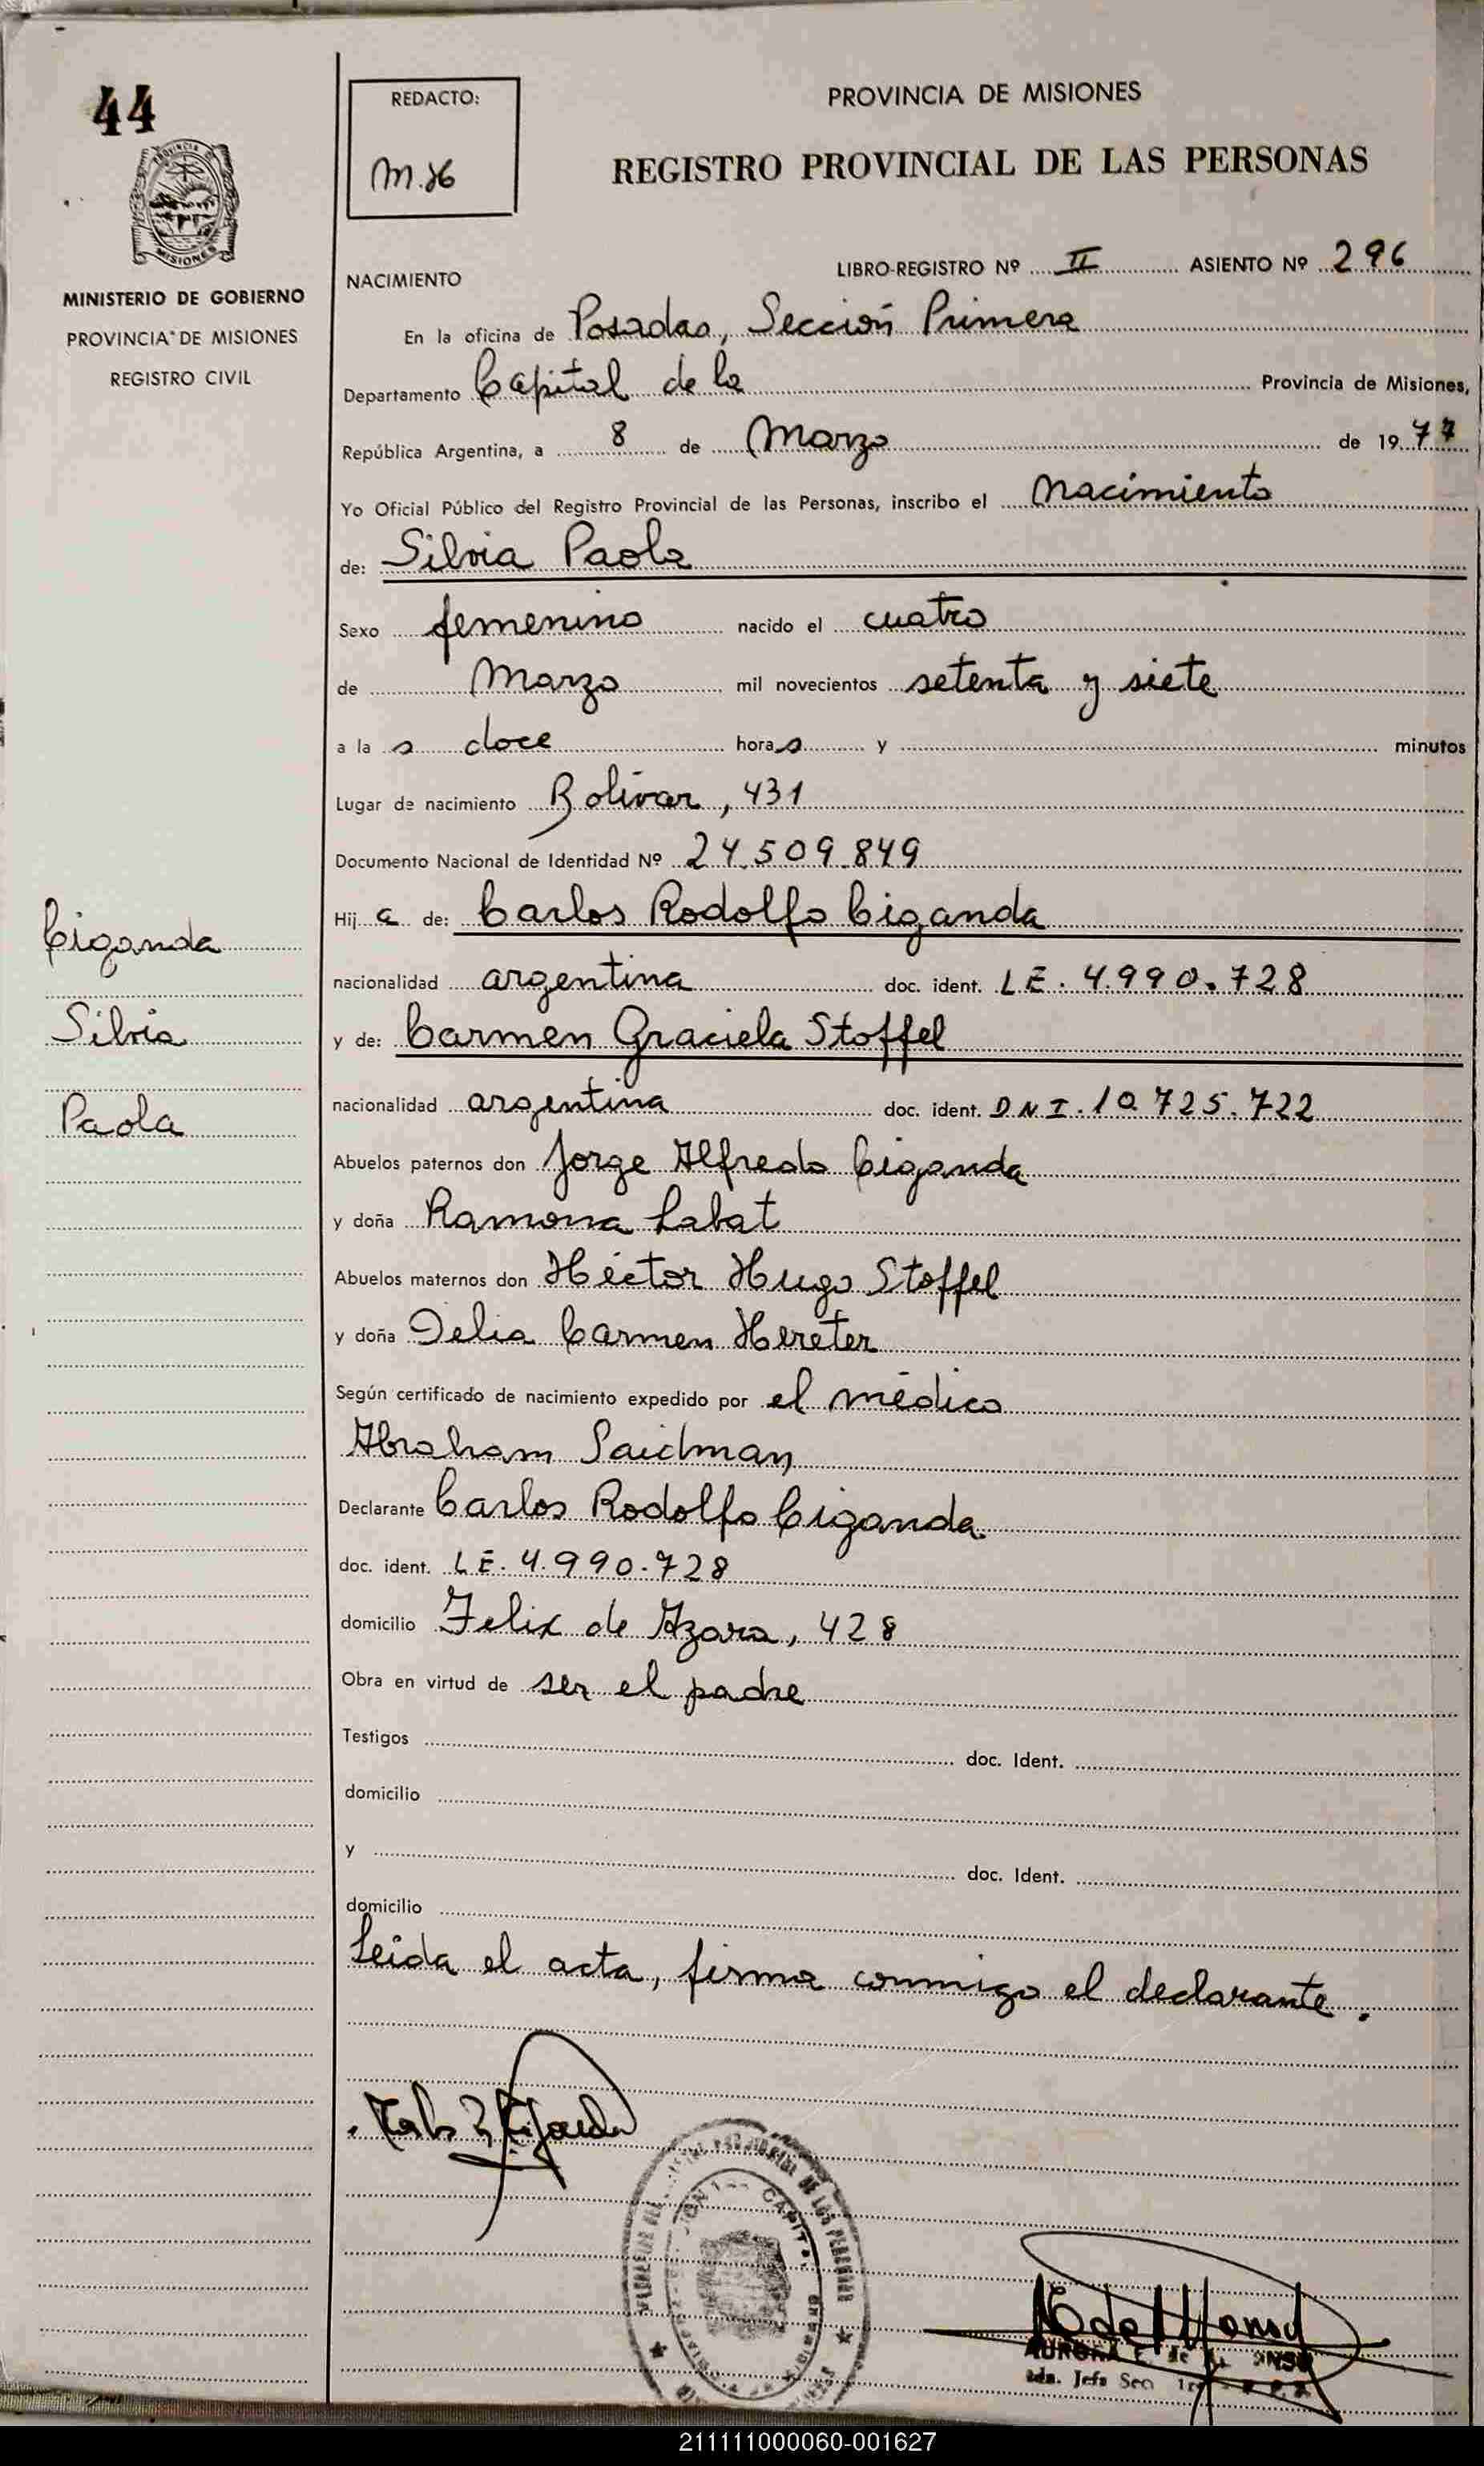 44
REDACTO:
PROVINCIA DE MISIONES
REGISTRO PROVINCIAL DE LAS PERSONAS
PROVINCIA
MISIONES
MINISTERIO DE GOBIERNO
PROVINCIA DE MISIONES
REGISTRO CIVIL
LIBRO-REGISTRO Nº II ASIENTO Nº 296
NACIMIENTO
En la oficina de Posadas, Sección Primera
Departamento Capital de la Provincia de Misiones,
República Argentina, a 8 de Marzo de 1977
Yo Oficial Público del Registro Provincial de las Personas, inscribo el Nacimiento
de: Silvia Paola
Sexo femenino nacido el cuatro
de Marzo mil novecientos setenta y siete
a la s doce hora s y minutos
Lugar de nacimiento Bolívar, 431
Documento Nacional de Identidad Nº 24.509.849
Hij a de: Carlos Rodolfo Ciganda
nacionalidad argentina doc. ident. LE. 4.990.728
y de: Carmen Graciela Stoffel
nacionalidad argentina doc. ident. D.N.I. 10.725.722
Abuelos paternos don Jorge Alfredo Ciganda
y doña Ramona Labat
Abuelos maternos don Héctor Hugo Stoffel
y doña Delia Carmen Hereter
Según certificado de nacimiento expedido por el médico
Abraham Saidman
Declarante Carlos Rodolfo Ciganda
doc. ident. LE. 4.990.728
domicilio Felix de Azara, 428
Obra en virtud de ser el padre
Testigos doc. Ident.
domicilio
y doc. Ident.
domicilio
Leída el acta, firma conmigo el declarante.
Ciganda
Silvia
Paola
AURORA
Jefa Sec
211111000060-001627